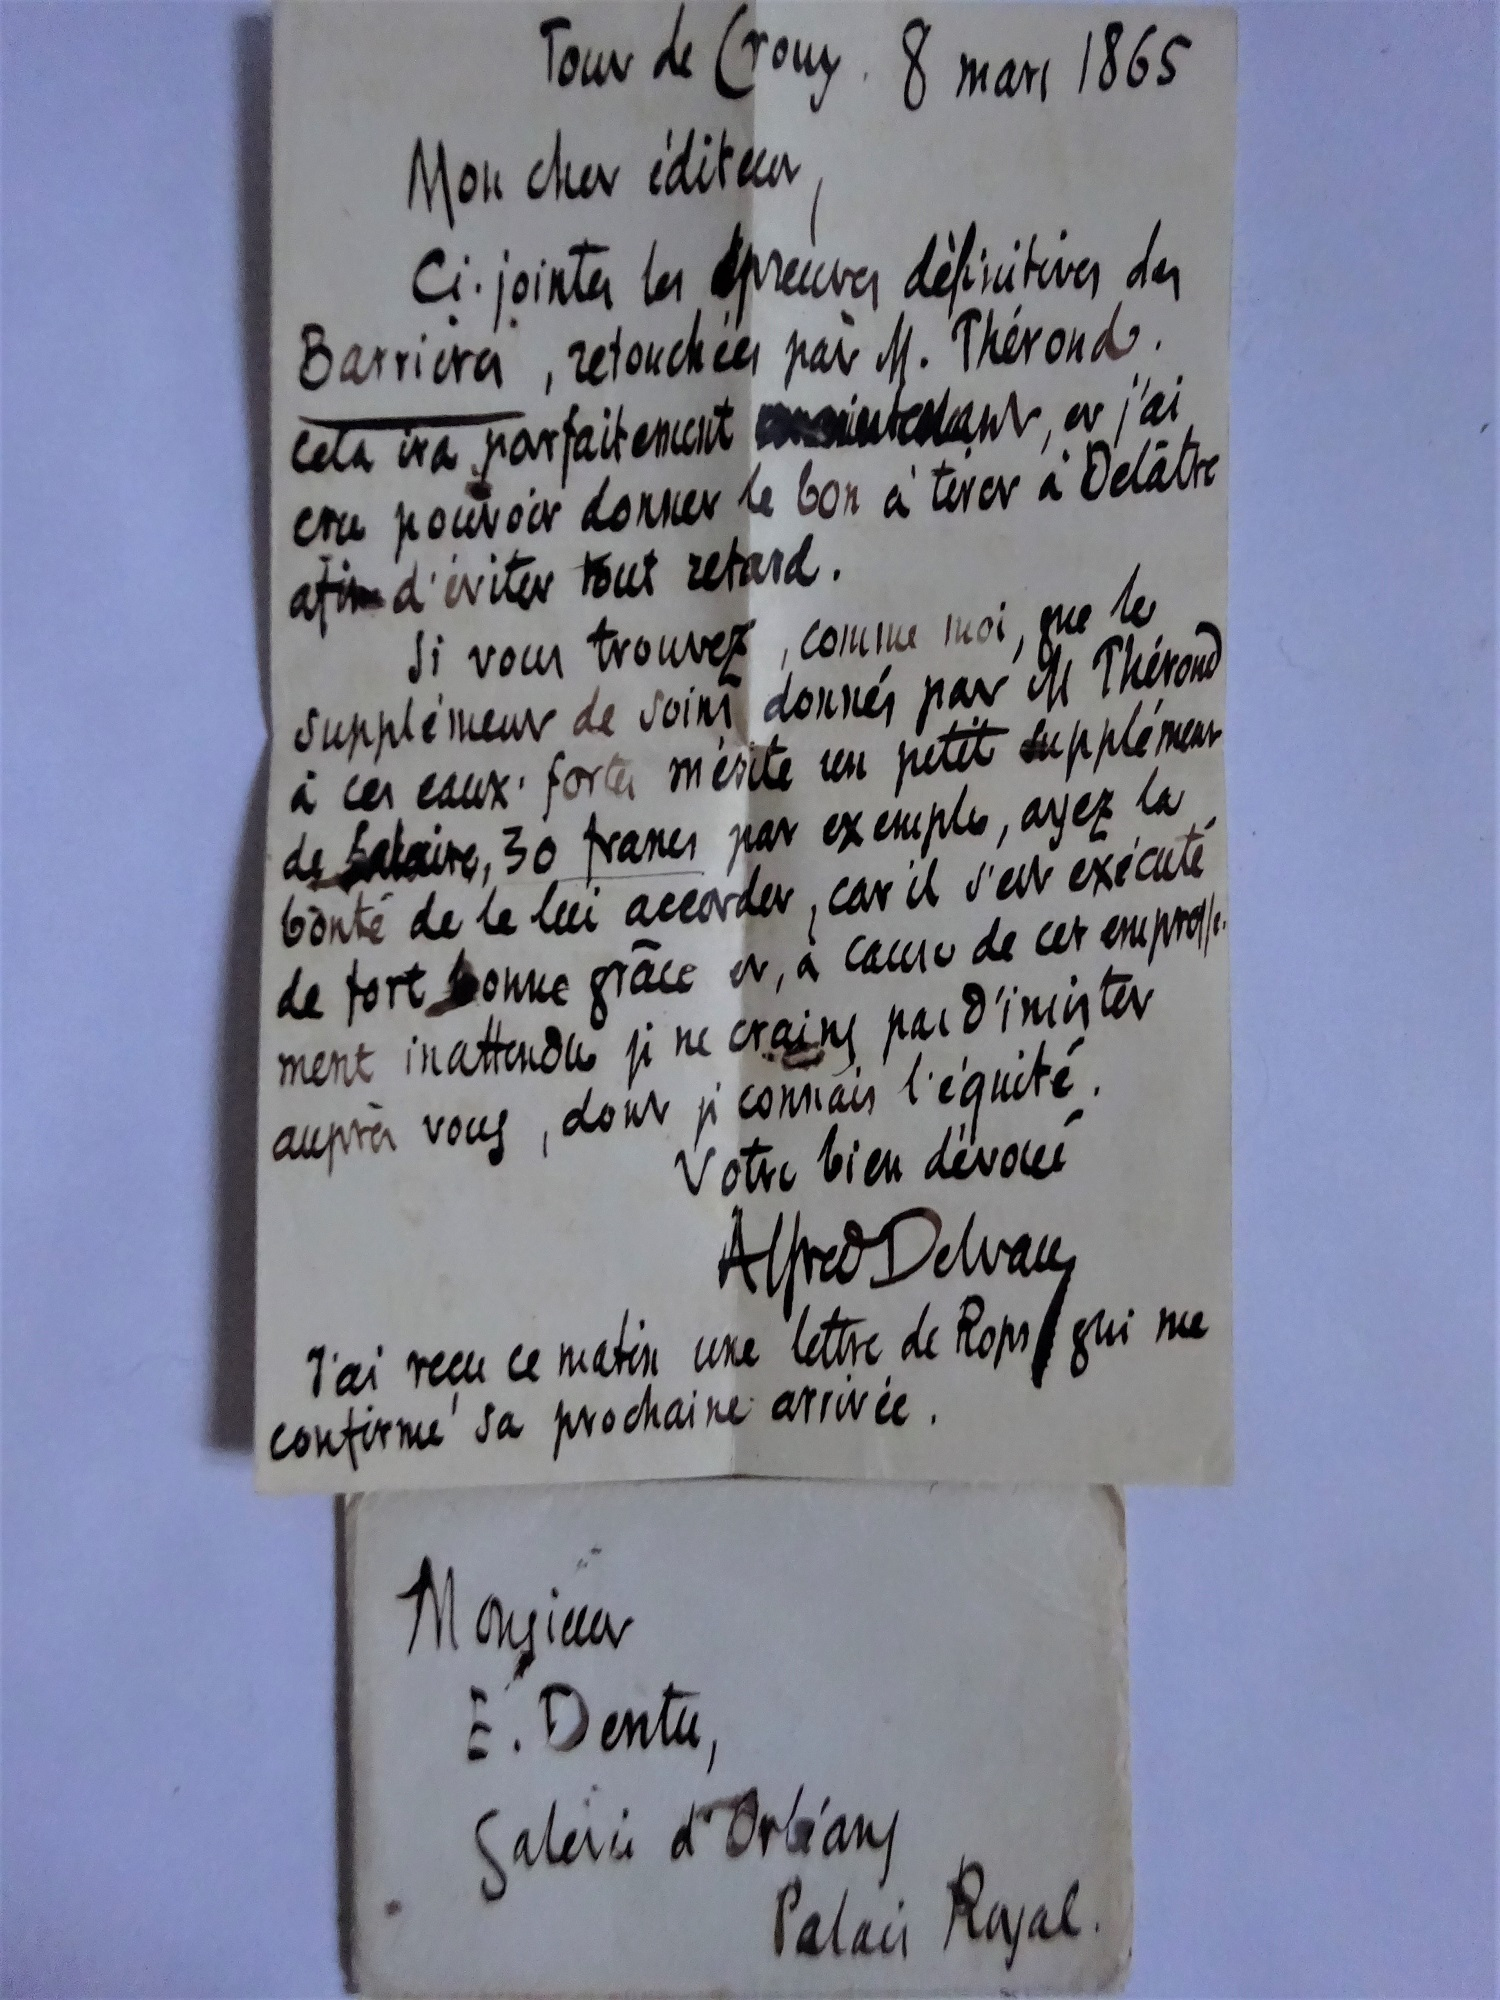 Tour de Crouy. 8 mars 1865
Mon cher éditeur,
Ci-jointes les épreuves définitives des
Barrières, retouchées par M. Thérond.
cela ira parfaitement maintenant, et j'ai
cru pouvoir donner le bon à tirer à Delâtre
afin d'éviter tout retard.
Si vous trouvez, comme moi, que le
supplément de soins donnés par M Thérond
à ces eaux-fortes mérite un petit supplément
de salaire, 30 francs par exemple, ayez la
bonté de le lui accorder, car il s'est exécuté
de fort bonne grâce et, à cause de cet empresse-
ment inattendu je ne crains pas d'insister
auprès vous, dont je connais l'équité.
Votre bien dévoué
Alfred Delvau
J'ai reçu ce matin une lettre de Rops qui me
confirme sa prochaine arrivée.
Monsieur
E. Dentu,
Galerie d'Orléans
Palais Royal.